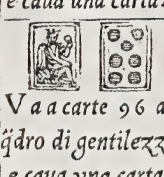 e caua una carta
V a a carte 96 a
q̃dro di gentilezz
e caua vna carta